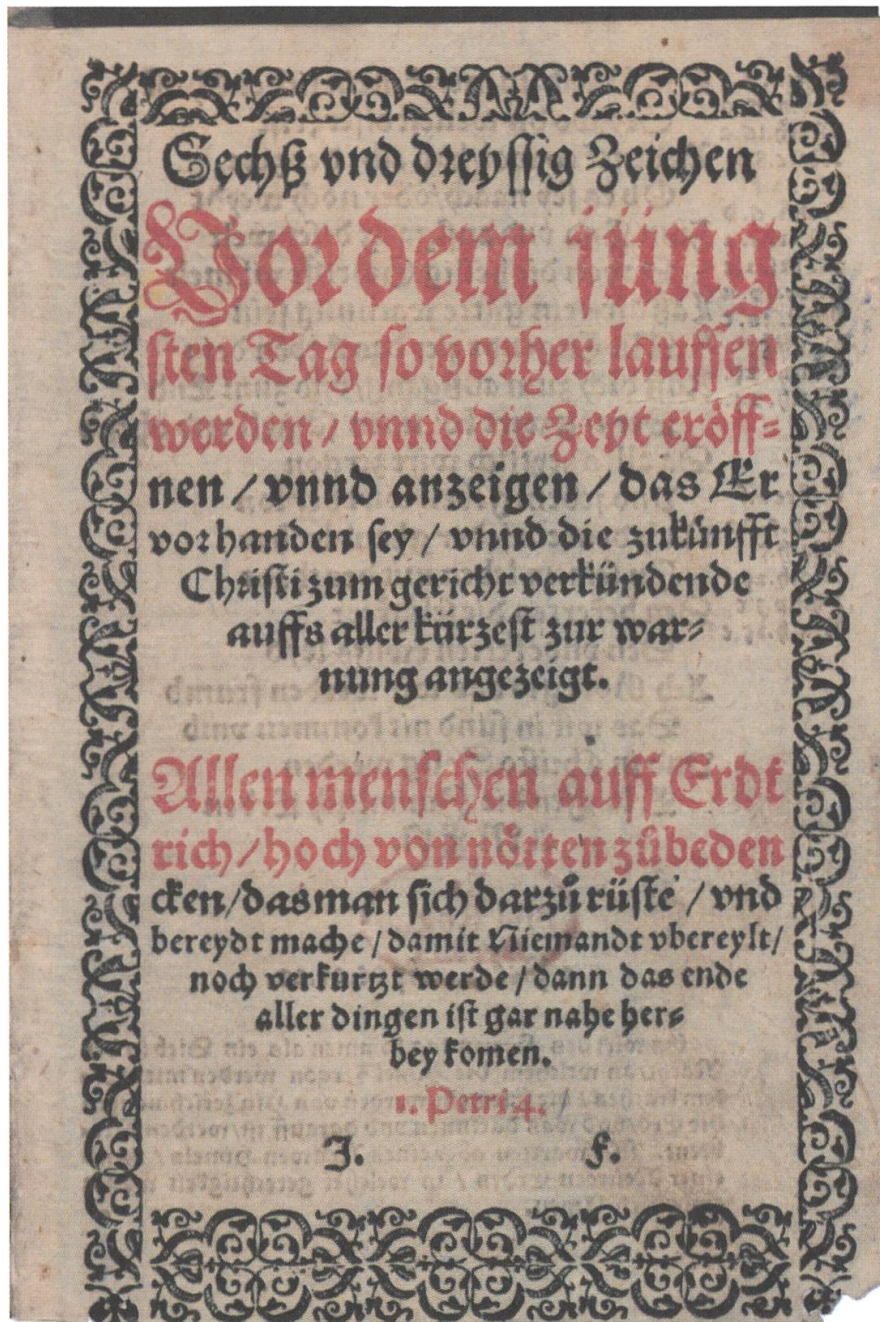 Sechß vnd dreyssig Zeichen
Vor dem jüng
sten Tag so vorher lauffen
werden / vnnd die Zeyt eröff-
nen / vnnd anzeigen / das Er
vorhanden sey / vnnd die zukünfft
Christi zum gericht verkündende
auffs aller kürzest zur war-
nung angezeigt.
Allen menschen auff Erdt
rich / hoch von nötten zůbeden
cken / das man sich darzů rüste / vnd
bereydt mache / damit Niemandt vbereylt /
noch verkurtzt werde / dann das ende
aller dingen ist gar nahe her-
bey komen.
1. Petri 4.
J. F.